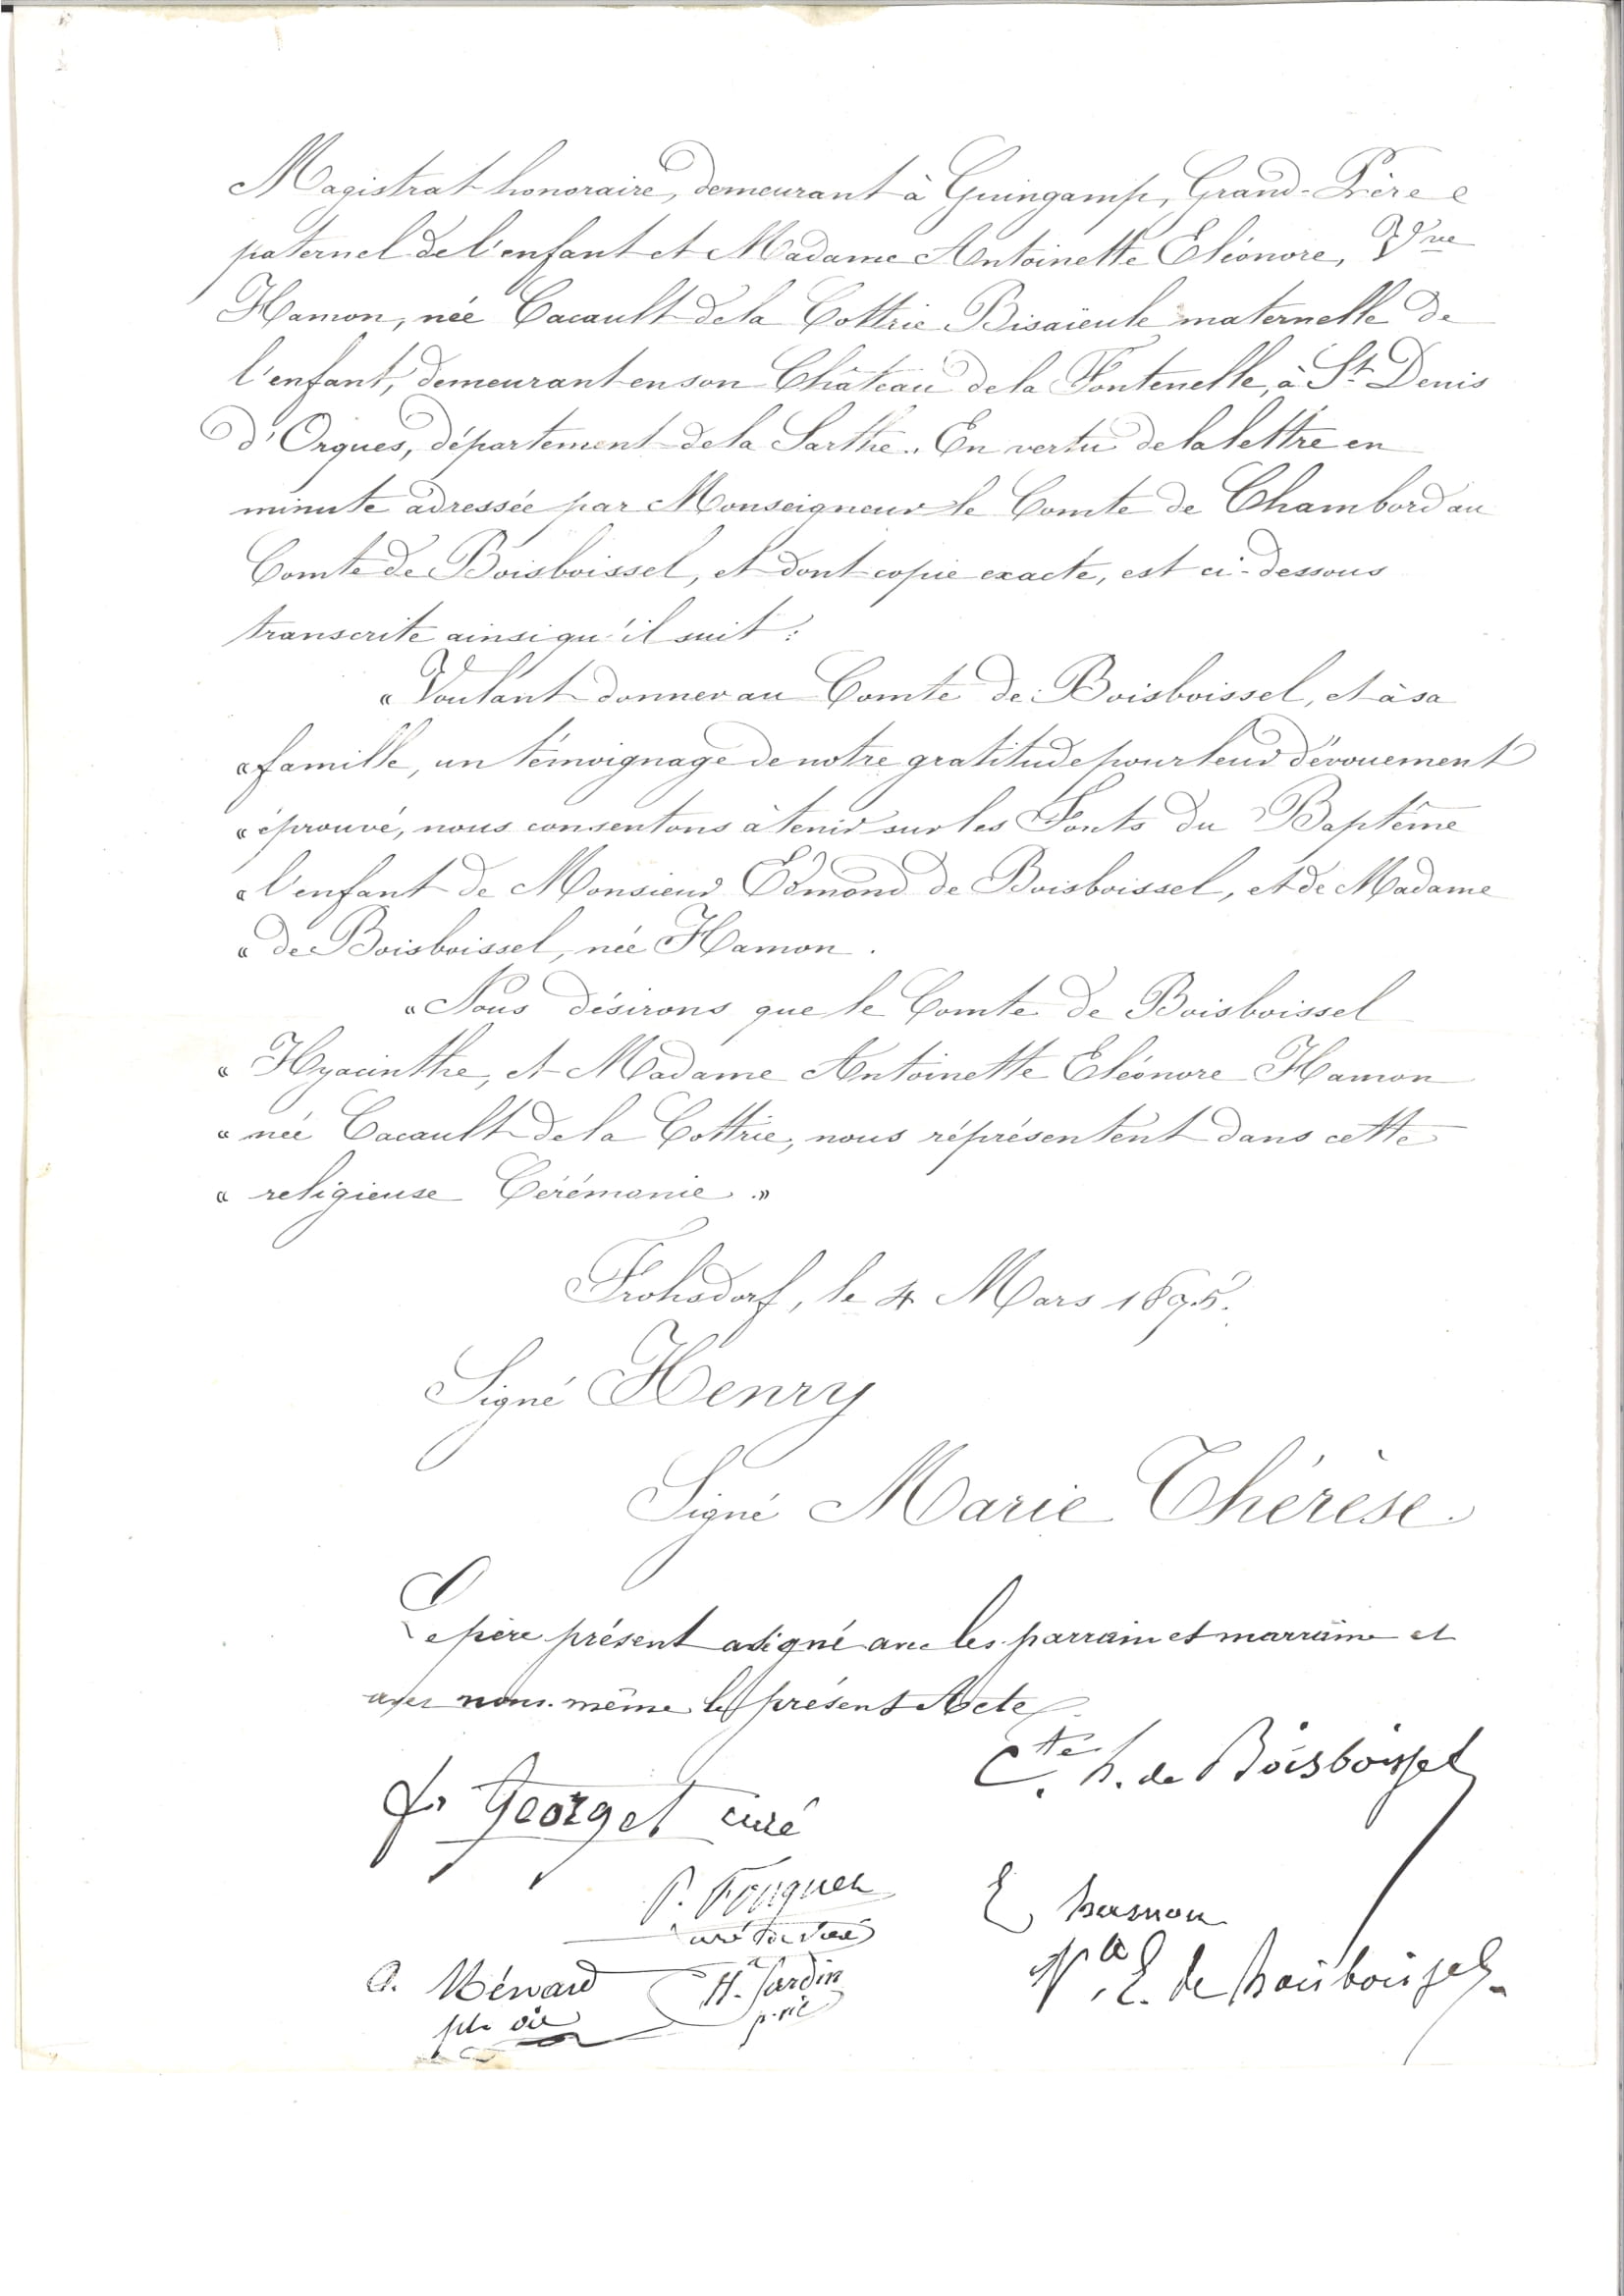 Magistrat honoraire, demeurant à Guingamp, Grand-Père
paternel de l'enfant et Madame Antoinette Eléonore, Vve
Hamon, née Cacault de la Cottrie Bisaïeule maternelle de
l'enfant, demeurant en son Château de la Fontenelle, à St Denis
d'Orques, département de la Sarthe. En vertu de la lettre en
minute adressée par Monseigneur le Comte de Chambord au
Comte de Boisboissel, et dont copie exacte, est ci-dessous
transcrite ainsi qu'il suit :
« Voulant donner au Comte de Boisboissel, et à sa
« famille, un témoignage de notre gratitude pour leur dévouement
« éprouvé, nous consentons à tenir sur les Fonts du Baptême
« l'enfant de Monsieur Edmond de Boisboissel, et de Madame
« de Boisboissel, née Hamon.
« Nous désirons que le Comte de Boisboissel
« Hyacinthe, et Madame Antoinette Eléonore Hamon
« née Cacault de la Cottrie, nous réprésentent dans cette
« religieuse Cérémonie. »
Frohsdorf, le 4 Mars
Signé Henry
Signé Marie Thérèse.
Le père présent a signé avec les parrain et marraine et
avec nous-même le présent Acte
Cte h. de Boisboissel
Georget curé
P.
E hamon
A. Ménard
H. Jardin
E. de Boisboissel